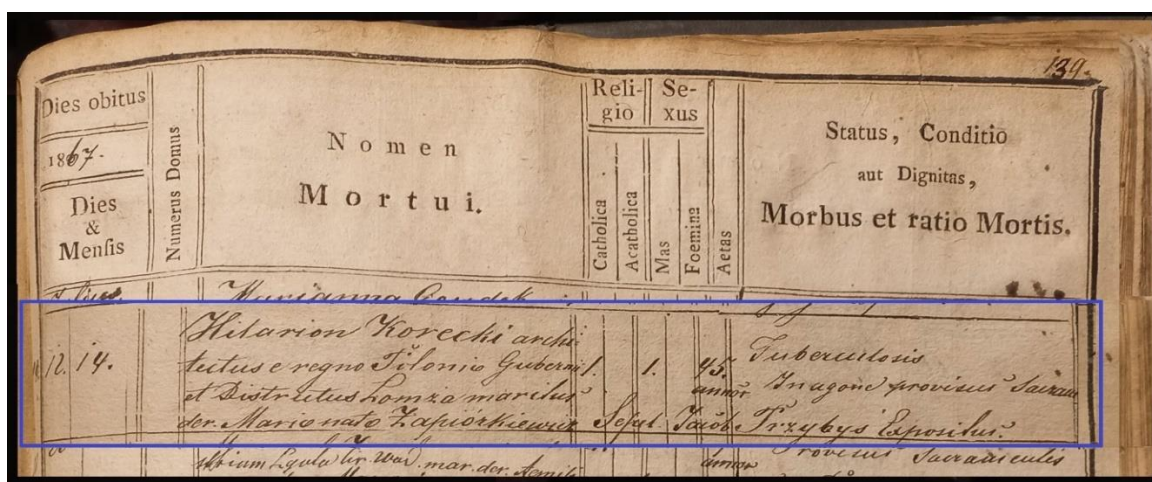 139.
Dies obitus
1867.
Dies
&
Menſis
Numerus Domus
Nomen
Mortui.
Reli-
gio
Catholica
Acatholica
Se-
xus
Mas
Foemina
Aetas
Status, Conditio
aut Dignitas,
Morbus et ratio Mortis.
Marianna
12. 14.
Hilarion Korecki archi
tectus e regno Poloniæ Guberni
et Districtus Lomza maritus
der. Marie nata Zapiorkiewicz
1. 1. 45.
annor
Sepul. Jacob
Tuberculosis
In agone provisus Sacram
Przybyś Expositus.
mar. der.
annor
Provisus Sacramentis